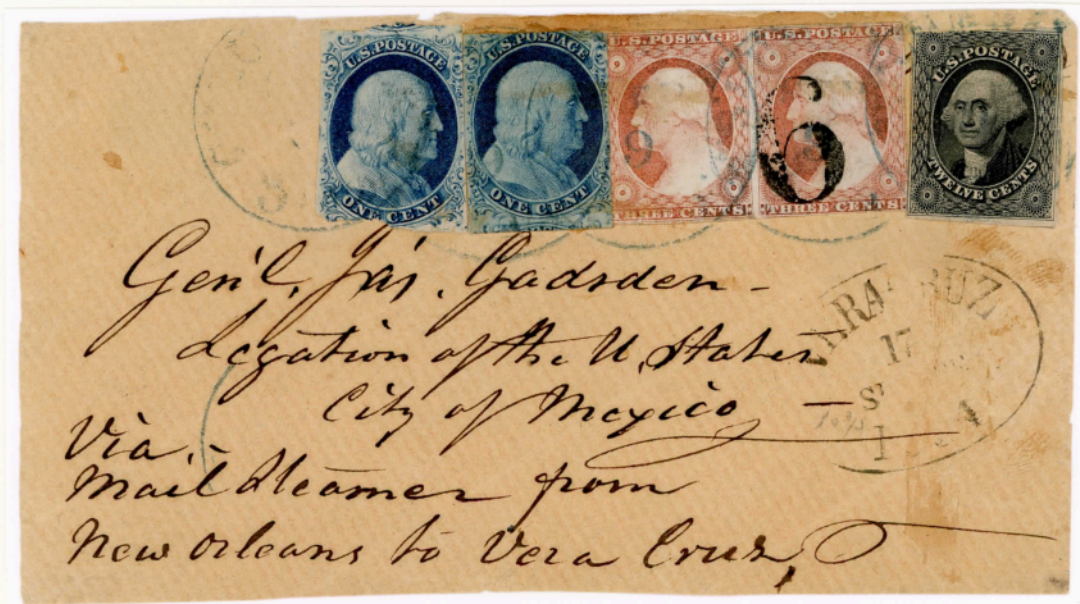 U.S. POSTAGE
ONE CENT
U.S. POSTAGE
ONE CENT
U.S. POSTAGE
THREE CENTS
U.S. POSTAGE
THREE CENTS
6
U.S. POSTAGE
TWELVE CENTS
Gen'l. Jas. Gadsden -
Legation of the U. States
City of Mexico -
Via.
Mail Steamer from
New Orleans to Vera Cruz,
17